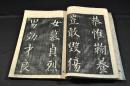 恭惟鞠養
豈敢毀傷
女慕貞烈
男効才良